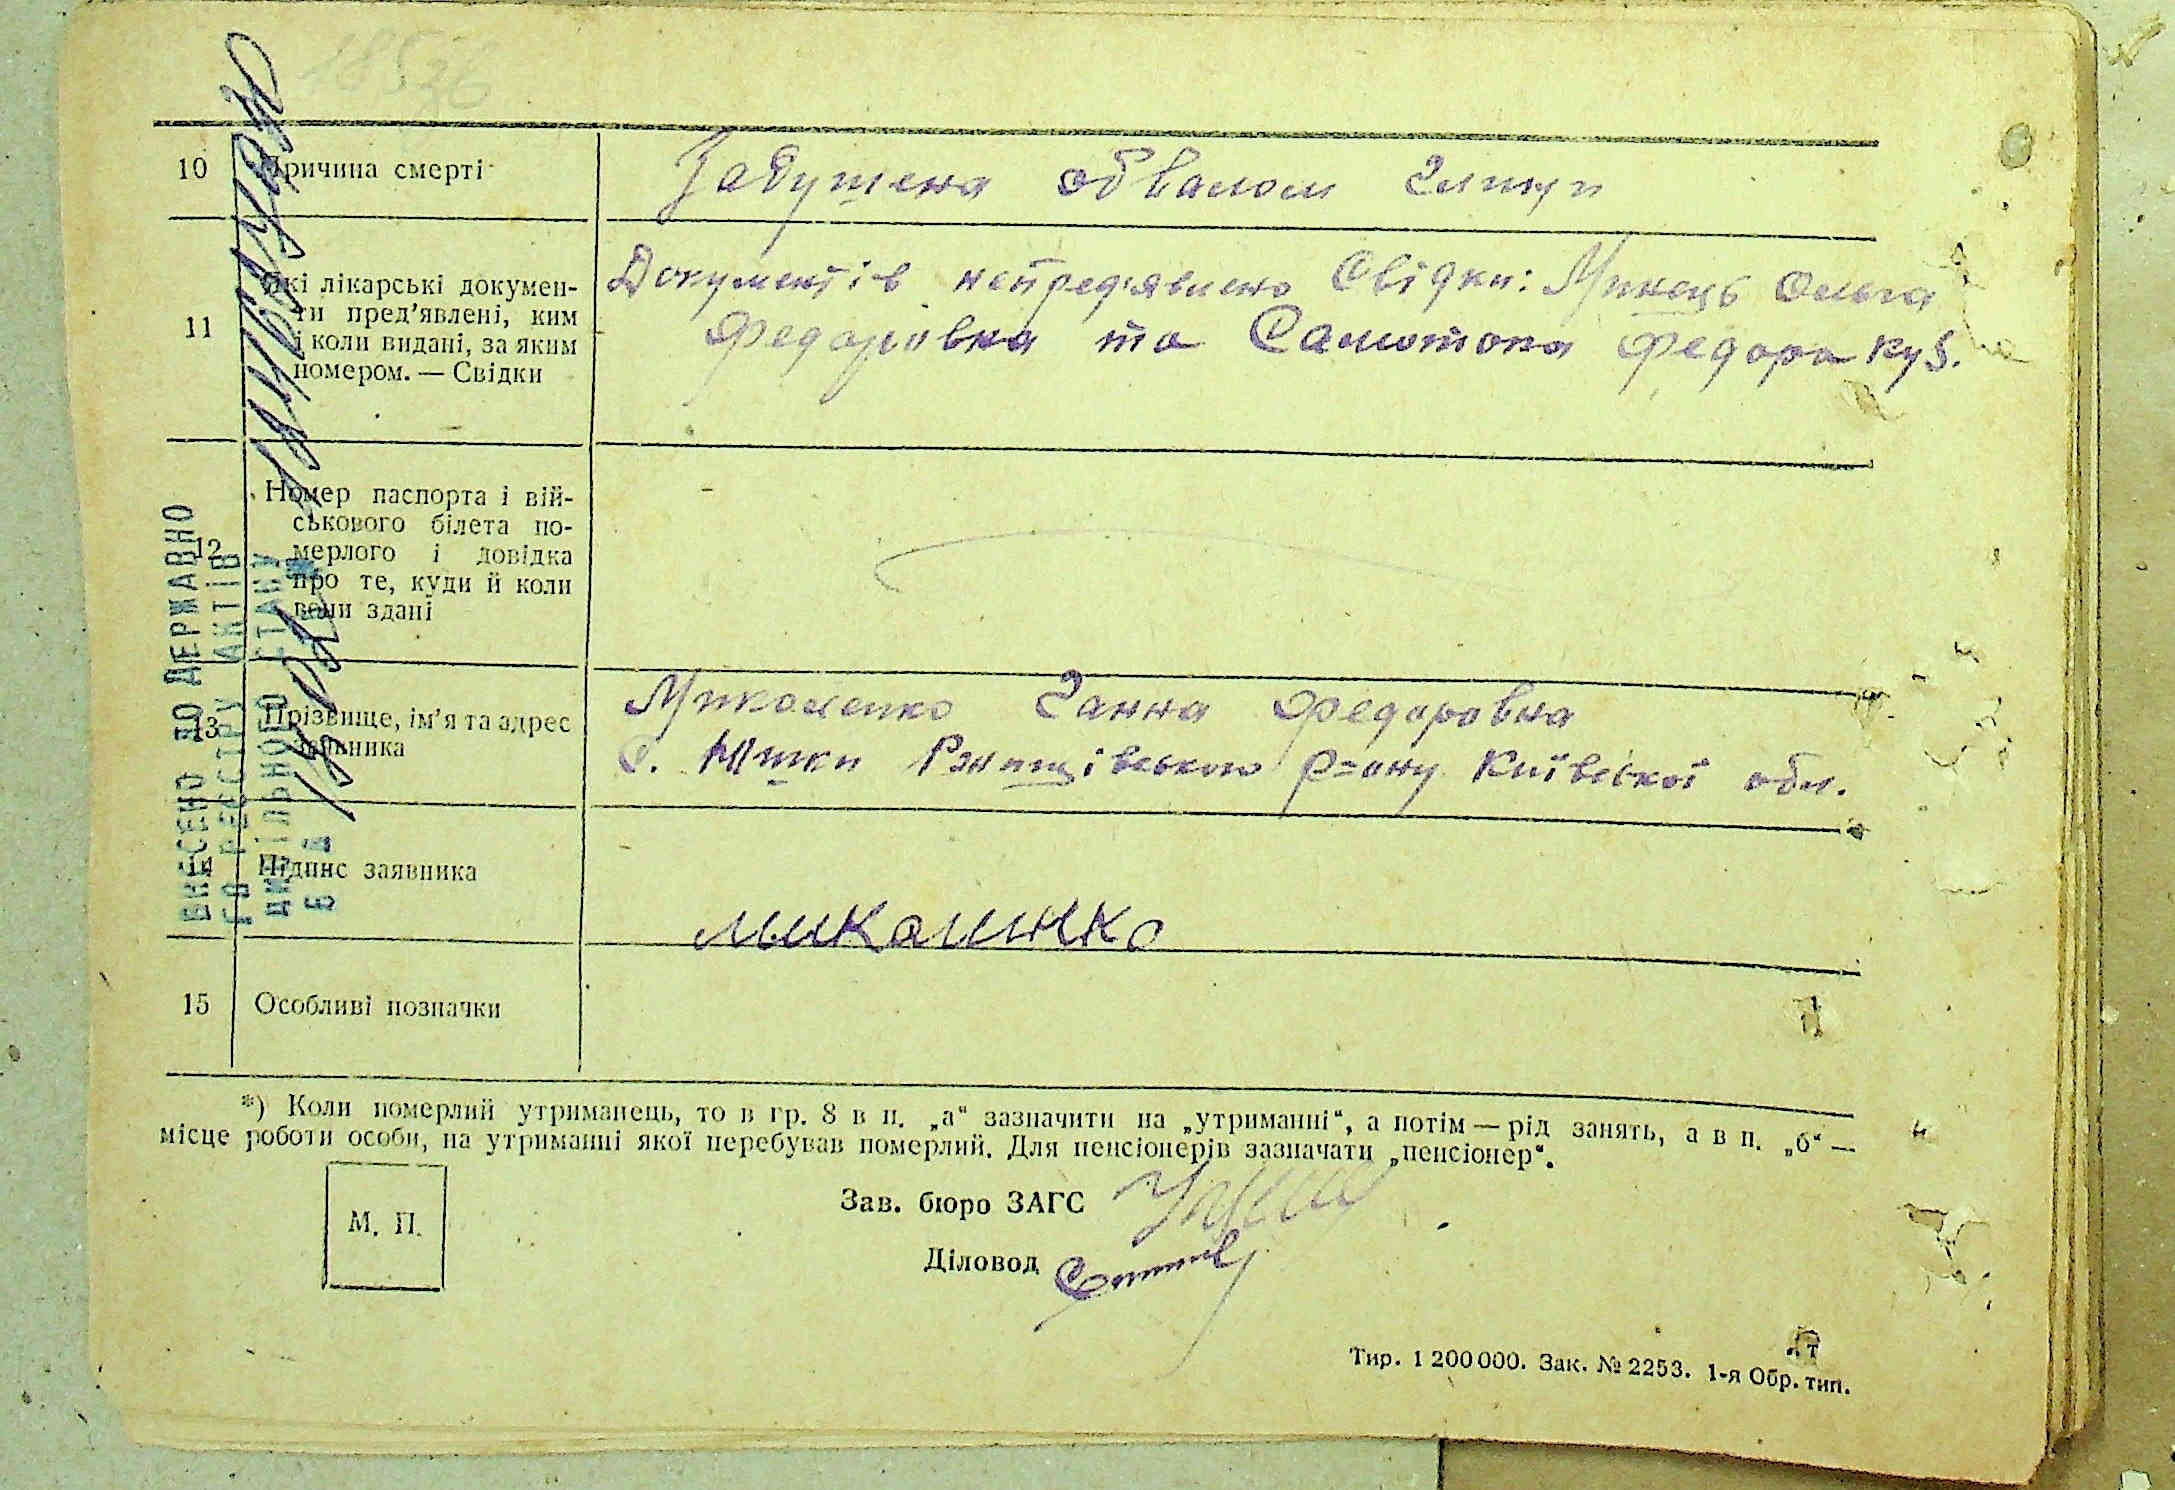 10 Причина смерті Задушена обвалом глини
11 Які лікарські докумен- Документів непред'явлено Свідки: Минець Ольга
ти пред’явлені, ким Федоровна та Самотока Федора куз.
і коли видані, за яким
номером. — Свідки
12 Номер паспорта і вій-
ськового білета по-
мерлого і довідка
про те, куди й коли
вони здані
13 Прізвище, ім’я та адрес Миколенко Ганна Федоровна
заявника с. Юшки Ржищівського р-ону Київської обл.
14 Підпис заявника
миколинко
15 Особливі позначки
*) Коли померлий утриманець, то в гр. 8 в п. „а“ зазначити на „утриманні“, а потім — рід занять, а в п. „б“ —
місце роботи особи, на утриманні якої перебував померлий. Для пенсіонерів зазначати „пенсіонер“.
М. П.
Зав. бюро ЗАГС
Діловод
Тир. 1 200 000. Зак. № 2253. 1-я Обр. тип.
ВНЕСЕНО ДО ДЕРЖАВНО
ГО РЕЄСТРУ АКТІВ
ЦИВІЛЬНОГО СТАНУ